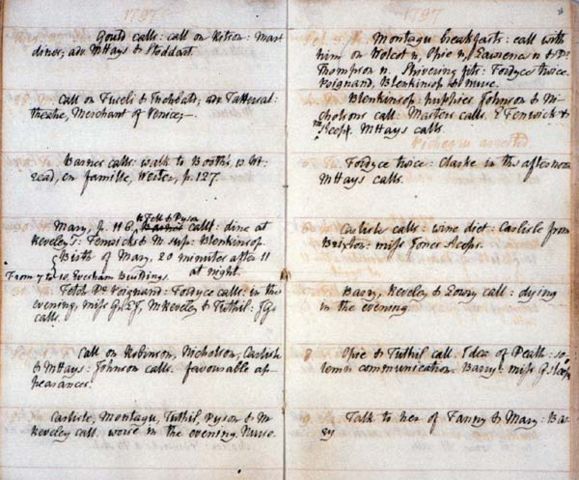 1797
Gould calls: call on
dines, adv. MHays & Stoddart.
Call on Fuseli & Inchbald; adv. Tattersal:
theatre, Merchant of Venice.
Barnes calls: walk to Booth's,
en famille, Werter, p. 127.
Mary, p. 116. Fell & Dyson call: dine at
Reveley's: Fenwicks & M. sup: Blenkinsop.
Birth of Mary, 20 minutes after 11
at night.
From 7 to 10, Evesham Buildings.
Fetch Dr Poignand: Fordyce calls: in the
evening, miss G & LJ, M Reveley & Tuthil:
calls.
Call on Robinson, Nicholson, Carlisle
& MHays: Johnson calls. favourable ap
pearances.
Carlisle, Montagu, Tuthil, Dyson & M
Reveley call. worse in the evening. Nurse.
1797
Montagu breakfasts: call with
him on Wolcot n, Opie n, Lawrence n & Dr
Thompson n. Shivering fits: Fordyce twice.
Poignand, Blenkinsop & nurse.
Blenkinsop: puppies Johnson & Ni
cholson call: Masters calls. E Fenwick &
sleep. MHays calls.
Pichegru arrested
Fordyce twice: Clarke in the afternoon
MHays calls.
Carlisle calls: wine diet: Carlisle from
Brixton: miss Jones sleeps.
Barry, Reveley & Lowry call: dying
in the evening.
Opie & Tuthil call. Idea of Death: so
lemn communication. Barry: miss G sleeps
Talk to her of Fanny & Mary: Bar
ry